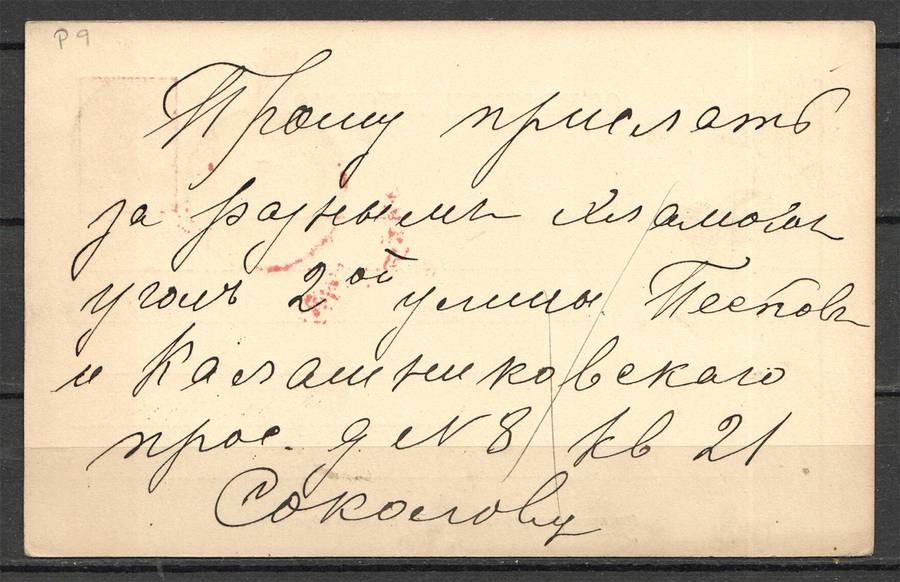 P 9
Прошу прислать
за разнымъ хламомъ
уголъ 2ой улицы Песковъ
и Калашниковскаго
прос. д. № 8 кв 21
Соколову